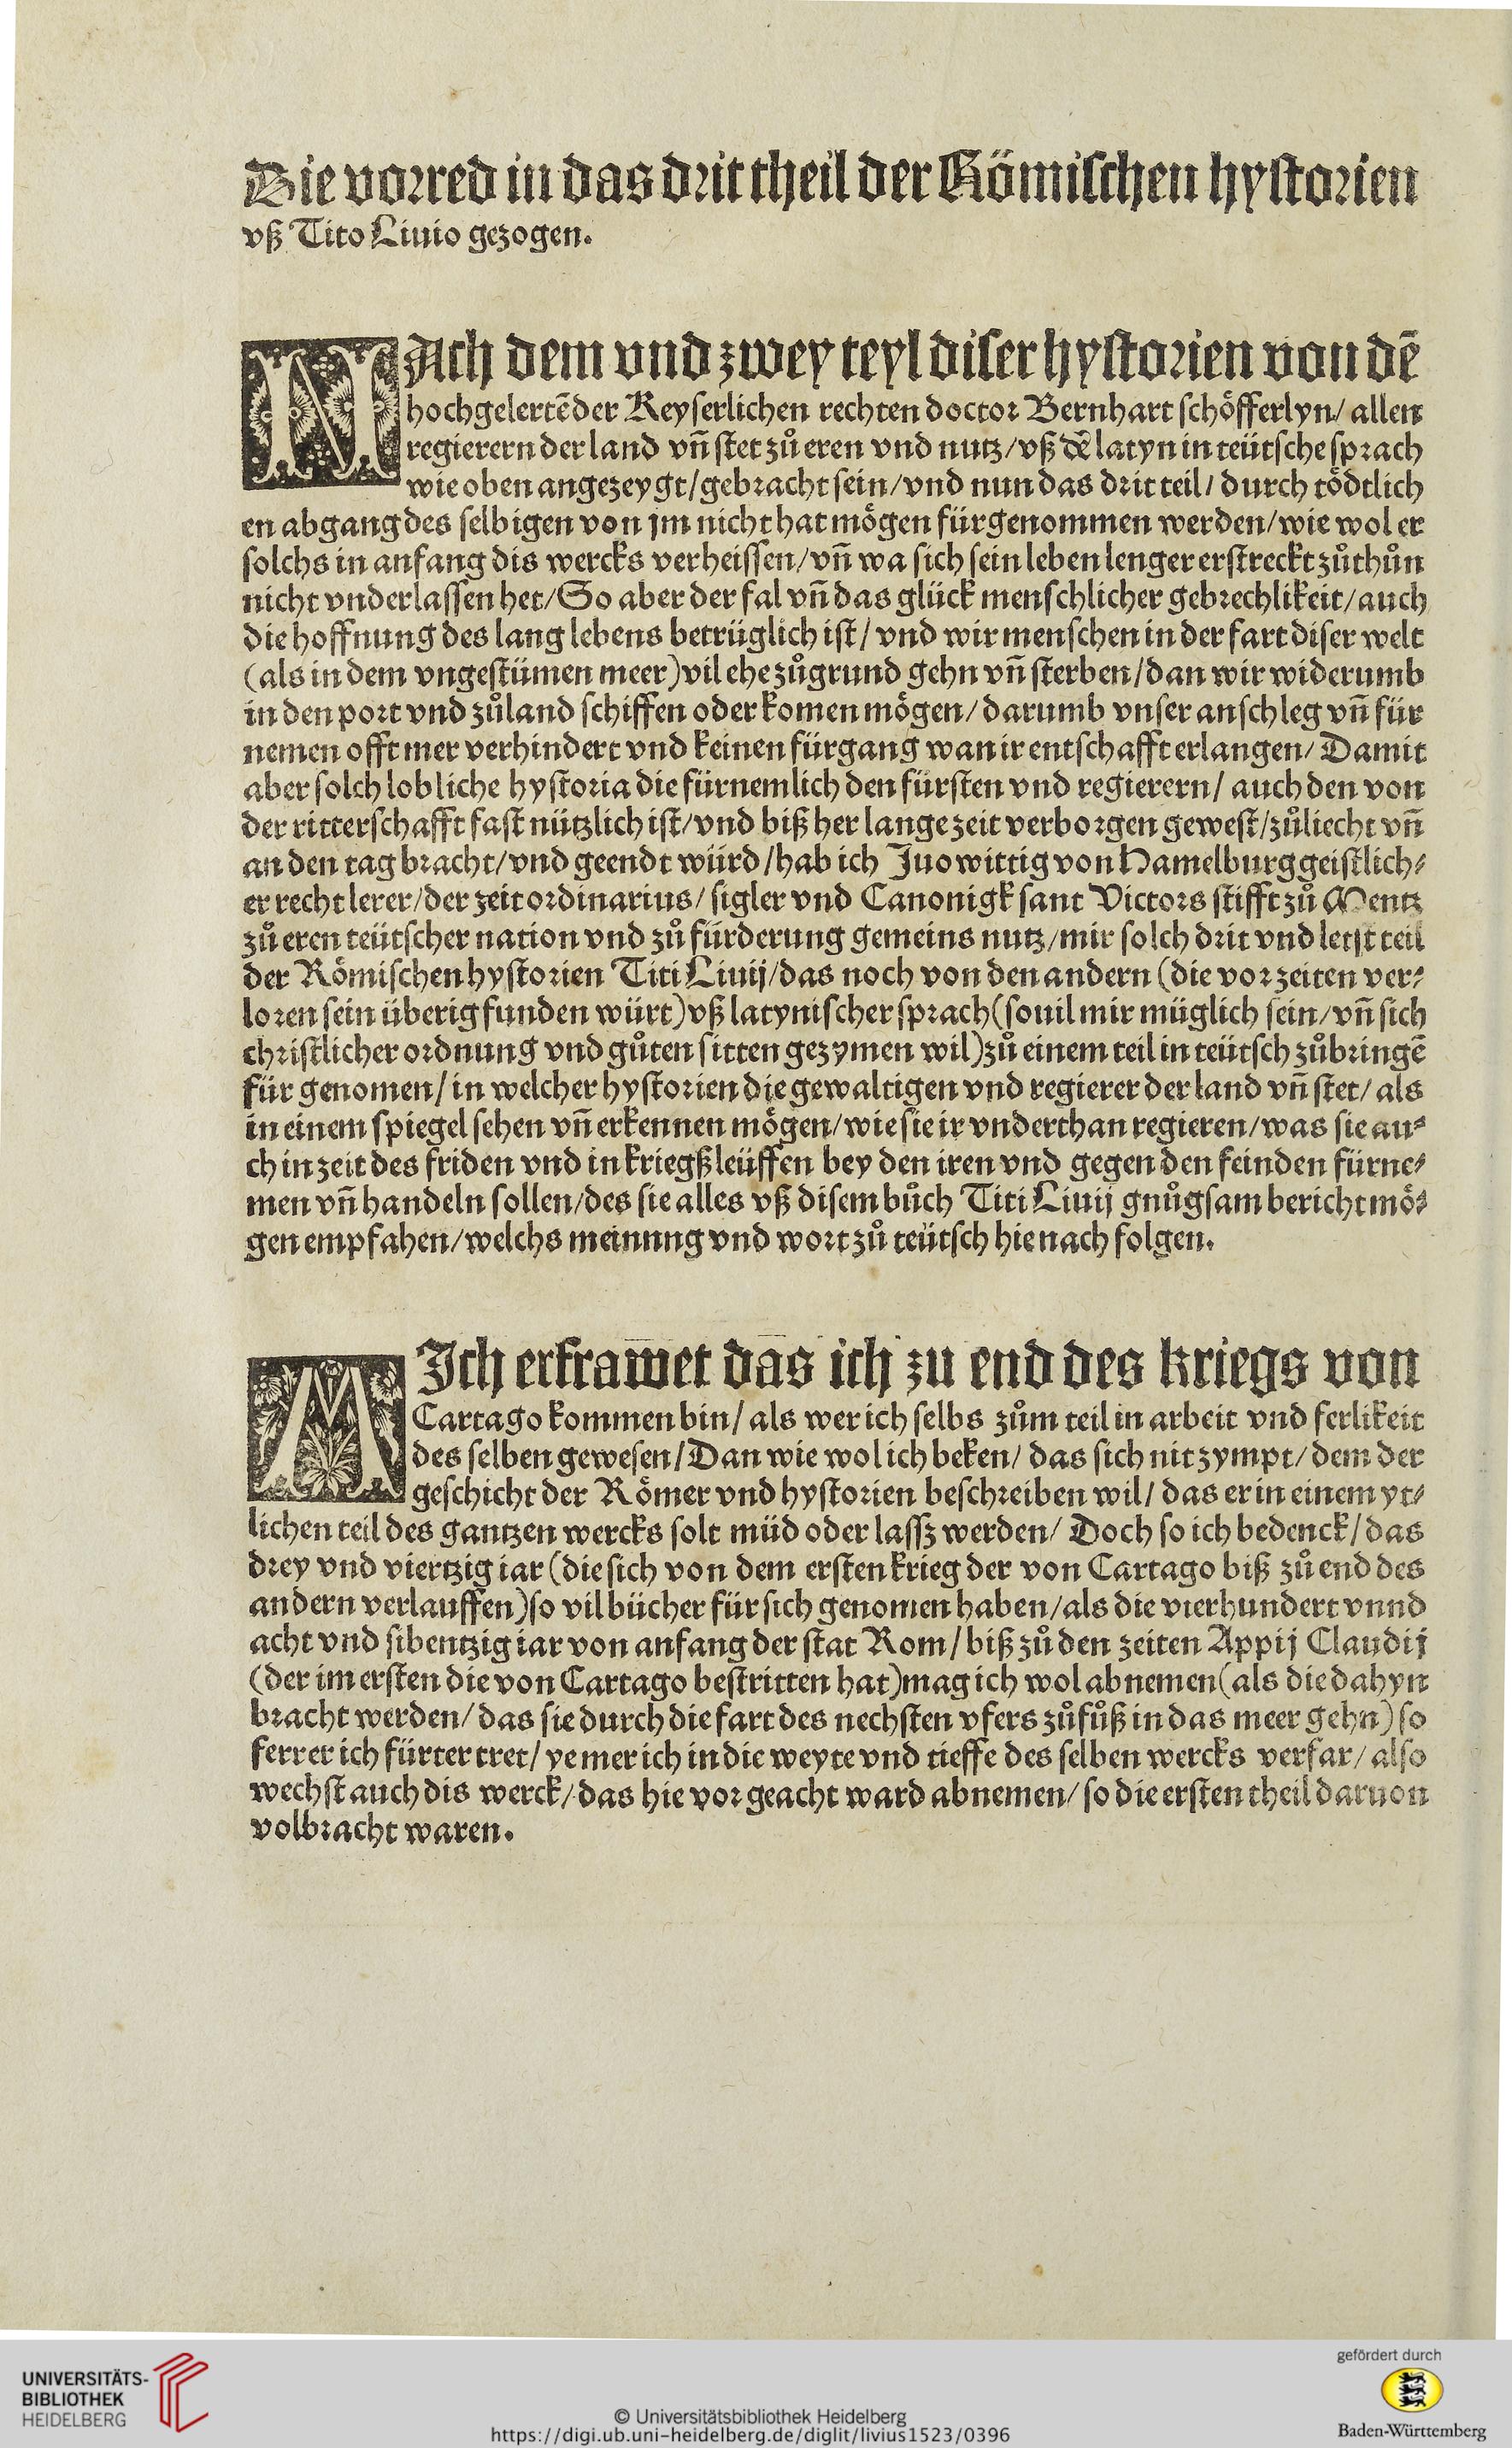 Die vorred in das drit theil der Römischen hystorien
vß Tito Liuio gezogen.
NAch dem vnd zwey teyl diser hystorien von dē
hochgelertē der Keyserlichen rechten doctor Bernhart schöfferlyn/ allen
regierern der land vñ stet zů eren vnd nutz/vß dē latyn in teütsche sprach
wie oben angezeygt/gebracht sein/vnd nun das drit teil/ durch tödtlich
en abgang des selbigen von jm nicht hat mögen fürgenommen werden/wie wol er
solchs in anfang dis wercks verheissen/vñ wa sich sein leben lenger erstreckt zůthůn
nicht vnderlassen het/So aber der fal vñ das glück menschlicher gebrechlikeit/auch
die hoffnung des lang lebens betrüglich ist/ vnd wir menschen in der fart diser welt
(als in dem vngestümen meer)vil ehe zůgrund gehn vñ sterben/dan wir widerumb
in den port vnd zůland schiffen oder komen mögen/ darumb vnser anschleg vñ für
nemen offt mer verhindert vnd keinen fürgang wan ir entschafft erlangen/ Damit
aber solch lobliche hystoria die fürnemlich den fürsten vnd regierern/ auch den von
der ritterschafft fast nützlich ist/vnd biß her lange zeit verborgen gewest/zůliecht vñ
an den tag bracht/vnd geendt würd/hab ich Juo wittig von Hamelburg geistlich⸗
er recht lerer/der zeit ordinarius/ sigler vnd Canonigk sant Victors stifft zů Mentz
zů eren teütscher nation vnd zů fürderung gemeins nutz/mir solch drit vnd letst teil
der Römischen hystorien Titi Liuij/das noch von den andern (die vor zeiten ver⸗
loren sein überig funden würt)vß latynischer sprach(souil mir müglich sein/vñ sich
christlicher ordnung vnd gůten sitten gezymen wil)zů einem teil in teütsch zůbringē
für genomen/ in welcher hystorien die gewaltigen vnd regierer der land vñ stet/ als
in einem spiegel sehen vñ erkennen mögen/wie sie ir vnderthan regieren/was sie au⸗
ch in zeit des friden vnd in kriegßleüffen bey den iren vnd gegen den feinden fürne⸗
men vñ handeln sollen/des sie alles vß disem bůch Titi Liuij gnůgsam bericht mö⸗
gen empfahen/welchs meinung vnd wort zů teütsch hie nach folgen.
MIch erfraw̄et das ich zu end des kriegs von
Cartago kommen bin/ als wer ich selbs zům teil in arbeit vnd ferlikeit
des selben gewesen/Dan wie wol ich beken/ das sich nit zympt/ dem der
geschicht der Römer vnd hystorien beschreiben wil/ das er in einem yt⸗
lichen teil des gantzen wercks solt müd oder lassz werden/ Doch so ich bedenck/das
drey vnd viertzig iar (die sich von dem ersten krieg der von Cartago biß zů end des
andern verlauffen)so vil bücher für sich genomen haben/als die vierhundert vnnd
acht vnd sibentzig iar von anfang der stat Rom/ biß zů den zeiten Appij Claudij
(der im ersten die von Cartago bestritten hat)mag ich wol abnemen(als die dahyn
bracht werden/ das sie durch die fart des nechsten vfers zůfůß in das meer gehn) so
ferrer ich fürter tret/ ye mer ich in die weyte vnd tieffe des selben wercks verfar/ also
wechst auch dis werck/das hie vor geacht ward abnemen/ so die ersten theil daruon
volbracht waren.
UNIVERSITÄTS-
BIBLIOTHEK
HEIDELBERG
© Universitätsbibliothek Heidelberg
https://digi.ub.uni-heidelberg.de/diglit/livius1523/0396
gefördert durch
Baden-Württemberg